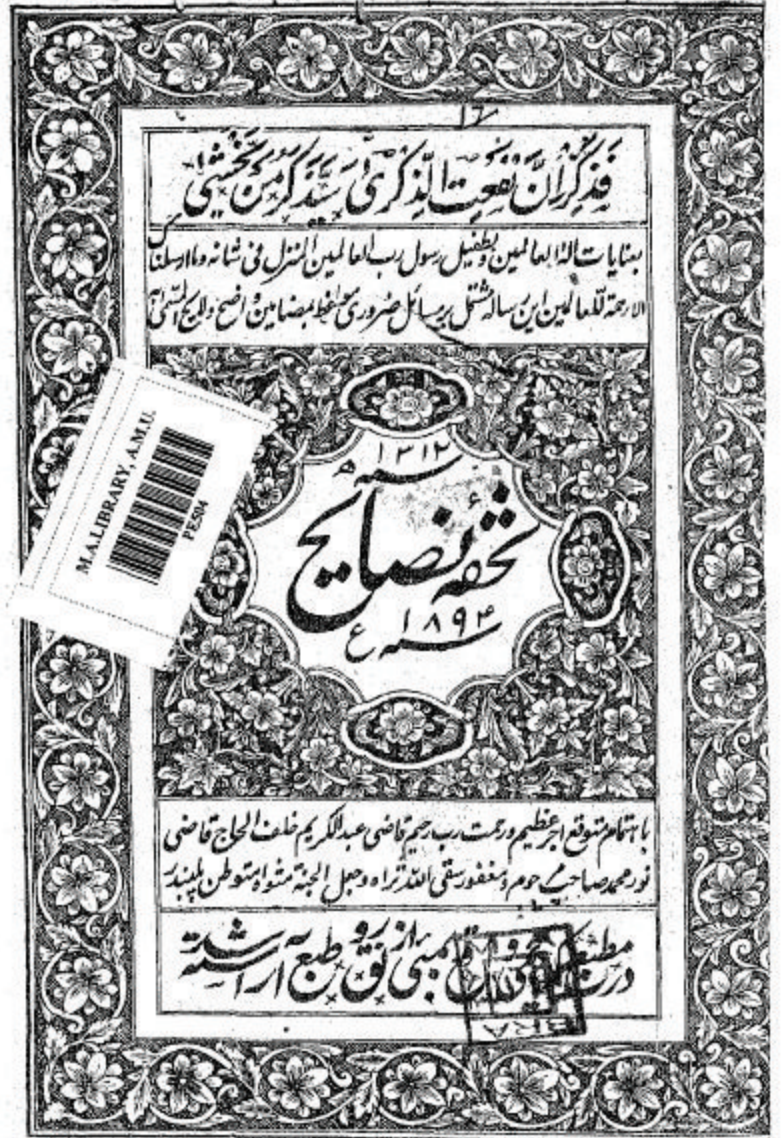 فذکر ان نفعت الذکری سیذکر من یخشی
بعنایات الٰه العالمین و بطفیل رسول رب العالمین المنزل فی شانه و ما ارسلناک
الا رحمة للعالمین این رساله مشتمل بر مسائل ضروری مواعظ بمضامین واضح و لایح المسمی به
سنه ۱۳۱۲ ھ
تحفهٔ نصایح
سنه ۱۸۹۴ ع
M.A.LIBRARY, A.M.U.
باهتمام متوقع اجر عظیم و رحمت رب رحیم قاضی عبدالکریم خلف الحاج قاضی
نور محمد صاحب مرحوم و مغفور سقی الله ثراه و جعل الجنة مثواه متوطن پلبندر
در مطبع بمبئی از رونق طبع آراسته